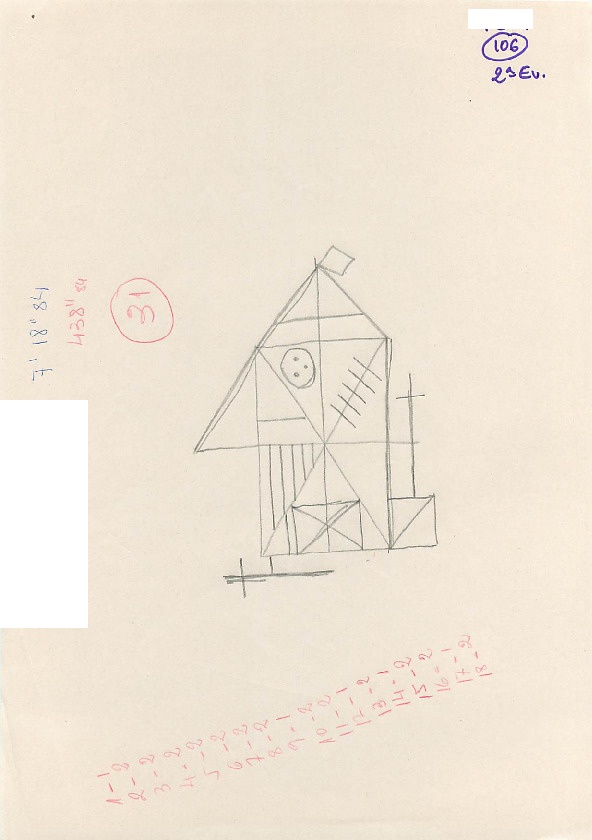 106
2ª Ev.
7' 18" 84
438" 84
31
1 - 1
2 - 2
3 - 2
4 - 2
5 - 2
6 - 2
7 - 2
8 - 2
9 - 1
10 - 2
11 - 2
12 - 1
13 - 2
14 - 1
15 - 2
16 - 2
17 - 1
18 - 2